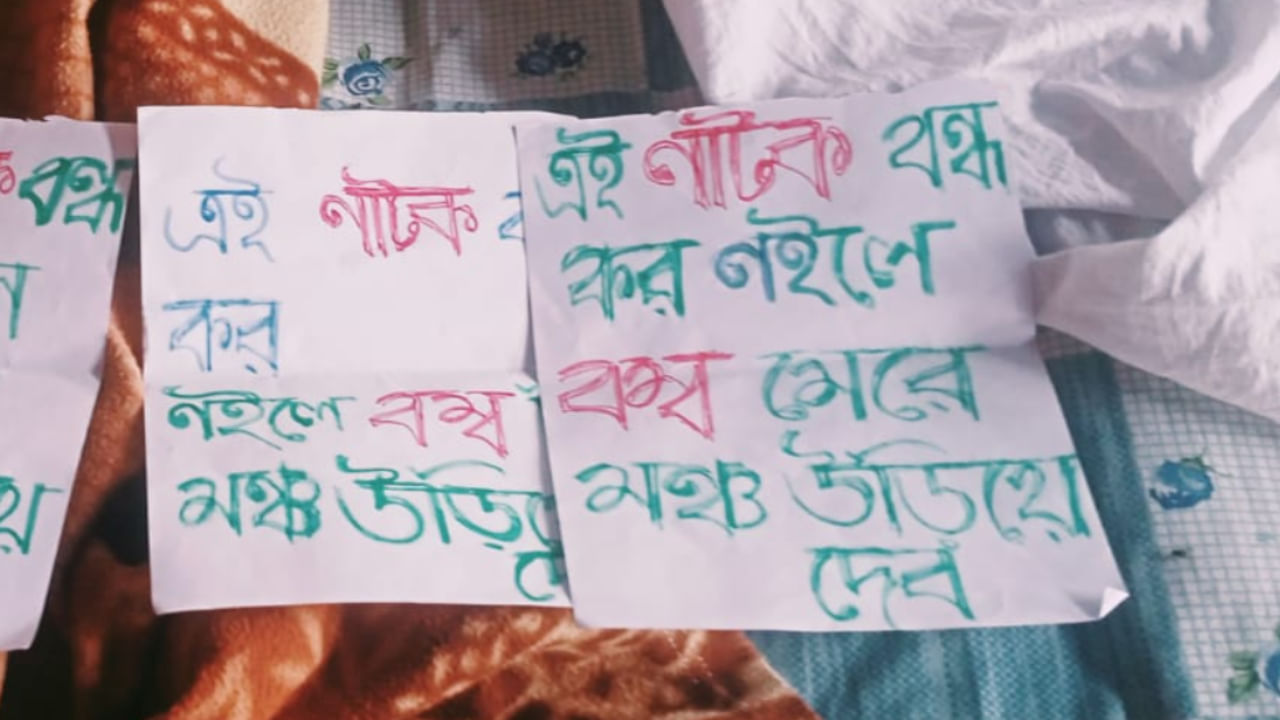 বন্ধ
এই নাটক
কর
নইলে বম্ব
মঞ্চ উড়ি
এই নাটক বন্ধ
কর নইলে
বম্ব মেরে
মঞ্চ উড়িয়ে
দেব